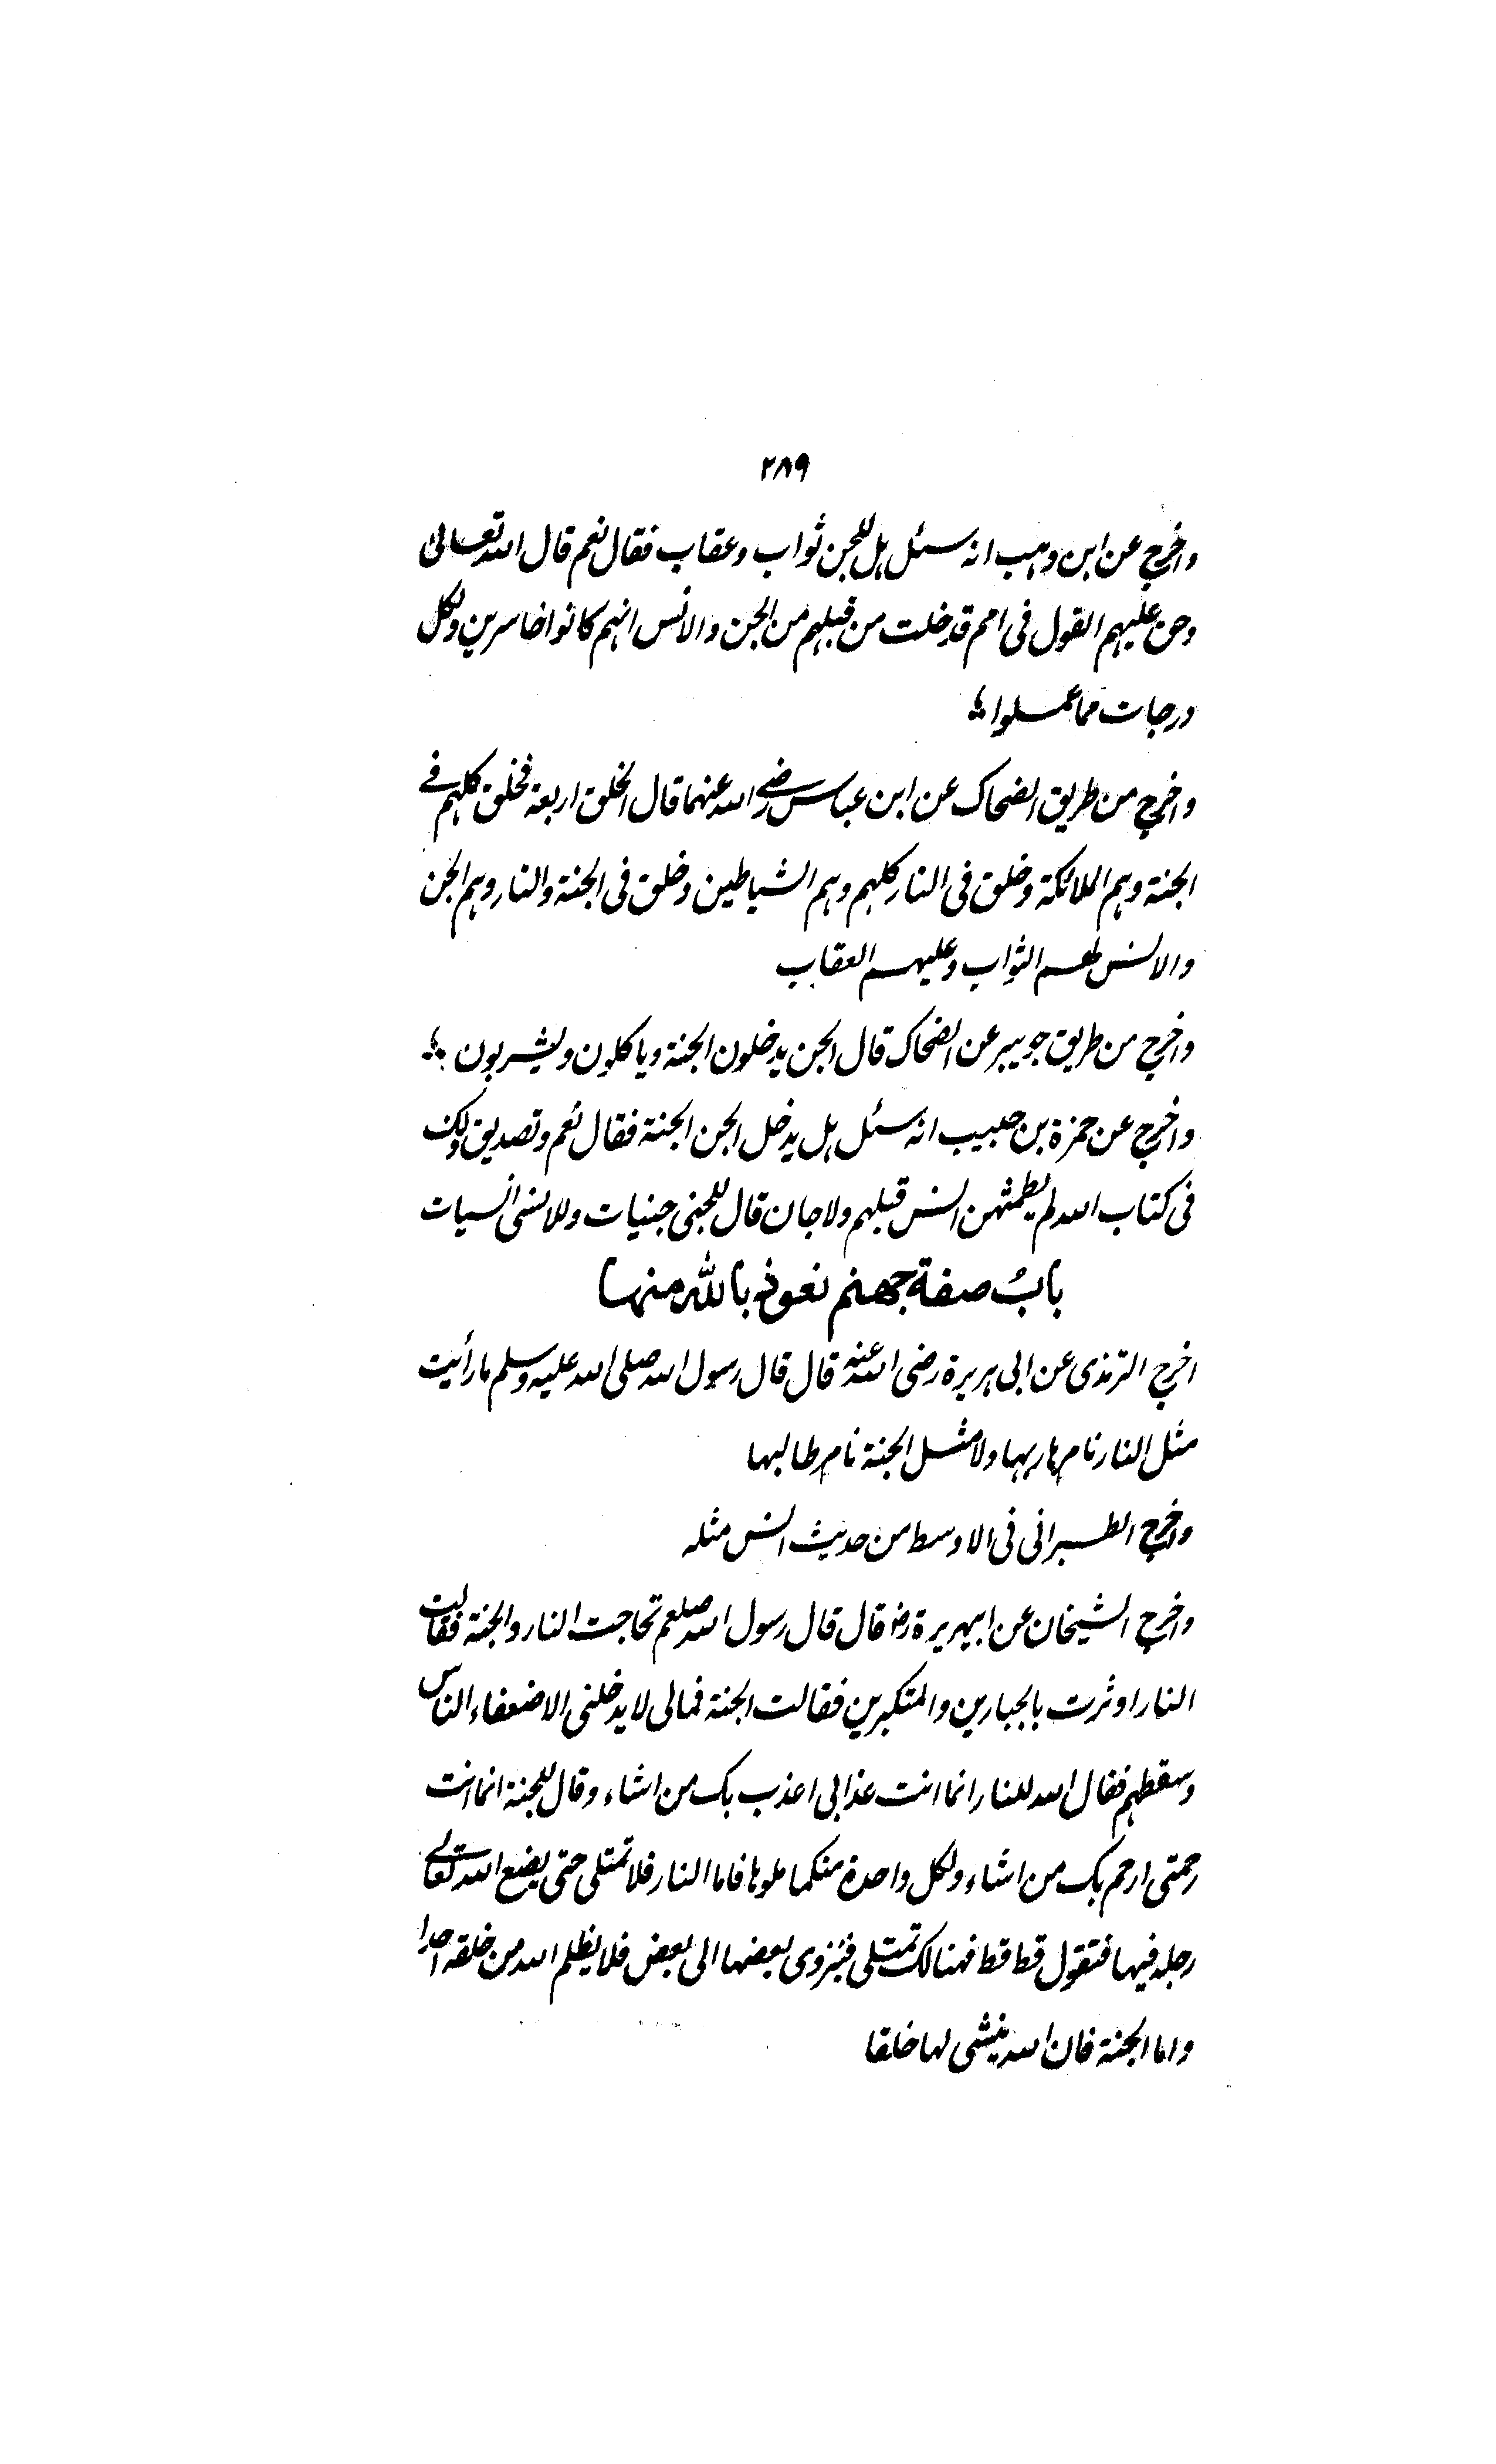 ۲۸۹
واخرج عن ابن وهب انه سئل هل للجن ثواب وعقاب فقال نعم قال الله تعالى
وحق عليهم القول فى امم قد خلت من قبلهم من الجن والانس انهم كانوا خاسرين ولكل
درجات مما عملوا
واخرج من طريق الضحاك عن ابن عباس رضى الله عنهما قال الخلق اربعة فخلق كلهم فى
الجنة وهم الملائكة وخلق فى النار كلهم وهم الشياطين وخلق فى الجنة والنار وهم الجن
والانس لهم الثواب وعليهم العقاب
واخرج من طريق جويبر عن الضحاك قال الجن يدخلون الجنة وياكلون ويشربون
واخرج عن حمزة بن حبيب انه سئل هل يدخل الجن الجنة فقال نعم وتصديق ذلك
فى كتاب الله لم يطمثهن انس قبلهم ولا جان قال للجنى جنيات وللانسى انسيات
بابُ صفة جهنم نعوذ بالله منها
اخرج الترمذى عن ابى هريرة رضى الله عنه قال قال رسول الله صلى الله عليه وسلم ما رأيت
مثل النار نام هاربها ولا مثل الجنة نام طالبها
واخرج الطبرانى فى الاوسط من حديث انس مثله
واخرج الشيخان عن ابيهريرة رضـ قال قال رسول الله صلعم تحاجت النار والجنة فقالت
النار اوثرت بالجبارين والمتكبرين فقالت الجنة فمالى لا يدخلنى الا ضعفاء الناس
وسقطهم فقال الله للنار انما انت عذابى اعذب بك من اشاء وقال للجنة انما انت
رحمتى ارحم بك من اشاء ولكل واحدة منكما ملوها فاما النار فلا تمتلى حتى يضع الله تعالى
رجله فيها فتقول قط قط فهنالك تمتلى فينزوى بعضها الى بعض فلا يظلم الله من خلقه احدا
واما الجنة فان الله ينشى لها خلقا